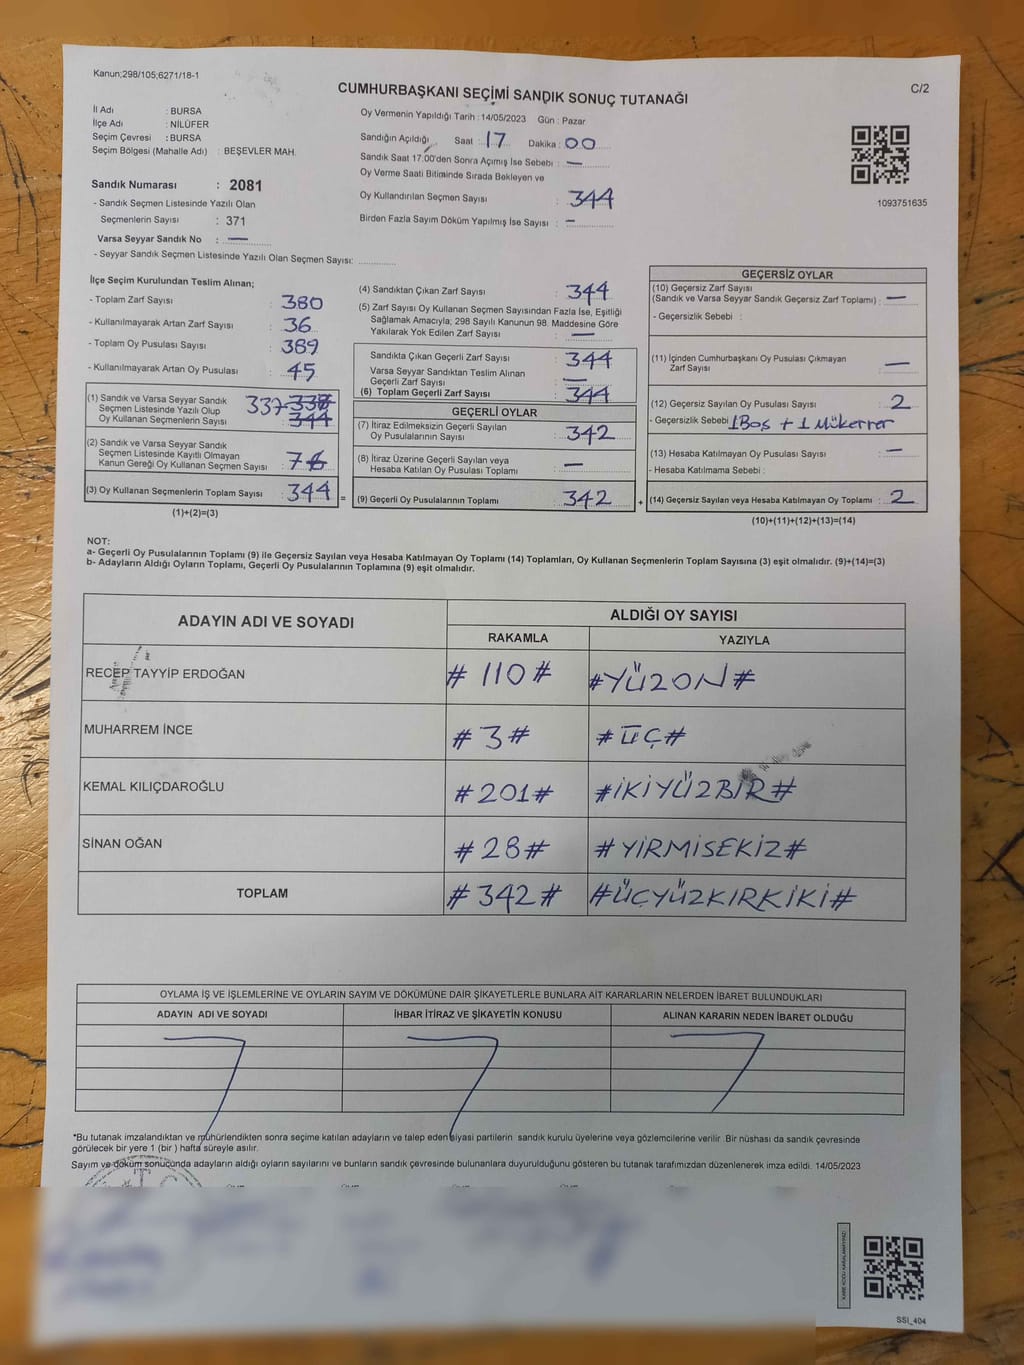 Kanun;298/105;6271/18-1
CUMHURBAŞKANI SEÇİMİ SANDIK SONUÇ TUTANAĞI
C/2
İl Adı : BURSA
İlçe Adı : NİLÜFER
Seçim Çevresi : BURSA
Seçim Bölgesi (Mahalle Adı) : BEŞEVLER MAH.
Sandık Numarası : 2081
- Sandık Seçmen Listesinde Yazılı Olan
Seçmenlerin Sayısı : 371
Varsa Seyyar Sandık No : —
- Seyyar Sandık Seçmen Listesinde Yazılı Olan Seçmen Sayısı: ............
Oy Vermenin Yapıldığı Tarih : 14/05/2023 Gün : Pazar
Sandığın Açıldığı Saat : 17 Dakika : 00
Sandık Saat 17:00'den Sonra Açımış İse Sebebi : —
Oy Verme Saati Bitiminde Sırada Bekleyen ve
Oy Kullandırılan Seçmen Sayısı : 344
Birden Fazla Sayım Döküm Yapılmış İse Sayısı : —
1093751635
İlçe Seçim Kurulundan Teslim Alınan;
- Toplam Zarf Sayısı : 380
- Kullanılmayarak Artan Zarf Sayısı : 36
- Toplam Oy Pusulası Sayısı : 389
- Kullanılmayarak Artan Oy Pusulası : 45
(1) Sandık ve Varsa Seyyar Sandık
Seçmen Listesinde Yazılı Olup
Oy Kullanan Seçmenlerin Sayısı : 337 338 344
(2) Sandık ve Varsa Seyyar Sandık
Seçmen Listesinde Kayıtlı Olmayan
Kanun Gereği Oy Kullanan Seçmen Sayısı : 7 6
(3) Oy Kullanan Seçmenlerin Toplam Sayısı : 344 =
(1)+(2)=(3)
(4) Sandıktan Çıkan Zarf Sayısı : 344
(5) Zarf Sayısı Oy Kullanan Seçmen Sayısından Fazla İse, Eşitliği
Sağlamak Amacıyla; 298 Sayılı Kanunun 98. Maddesine Göre
Yakılarak Yok Edilen Zarf Sayısı : —
Sandıkta Çıkan Geçerli Zarf Sayısı : 344
Varsa Seyyar Sandıktan Teslim Alınan
Geçerli Zarf Sayısı : —
(6) Toplam Geçerli Zarf Sayısı : 344
GEÇERLİ OYLAR
(7) İtiraz Edilmeksizin Geçerli Sayılan
Oy Pusulalarının Sayısı : 342
(8) İtiraz Üzerine Geçerli Sayılan veya
Hesaba Katılan Oy Pusulası Toplamı : —
(9) Geçerli Oy Pusulalarının Toplamı : 342 +
GEÇERSİZ OYLAR
(10) Geçersiz Zarf Sayısı
(Sandık ve Varsa Seyyar Sandık Geçersiz Zarf Toplamı) : —
- Geçersizlik Sebebi :
(11) İçinden Cumhurbaşkanı Oy Pusulası Çıkmayan
Zarf Sayısı : —
(12) Geçersiz Sayılan Oy Pusulası Sayısı : 2
- Geçersizlik Sebebi : 1 Boş + 1 Mükerrer
(13) Hesaba Katılmayan Oy Pusulası Sayısı : —
- Hesaba Katılmama Sebebi :
(14) Geçersiz Sayılan veya Hesaba Katılmayan Oy Toplamı : 2
(10)+(11)+(12)+(13)=(14)
NOT:
a- Geçerli Oy Pusulalarının Toplamı (9) ile Geçersiz Sayılan veya Hesaba Katılmayan Oy Toplamı (14) Toplamları, Oy Kullanan Seçmenlerin Toplam Sayısına (3) eşit olmalıdır. (9)+(14)=(3)
b- Adayların Aldığı Oyların Toplamı, Geçerli Oy Pusulalarının Toplamına (9) eşit olmalıdır.
ADAYIN ADI VE SOYADI
ALDIĞI OY SAYISI
RAKAMLA YAZIYLA
RECEP TAYYİP ERDOĞAN # 110 # #YÜZON#
MUHARREM İNCE # 3 # # ÜÇ #
KEMAL KILIÇDAROĞLU # 201 # #İKİYÜZBİR#
SİNAN OĞAN # 28 # # YİRMİSEKİZ#
TOPLAM # 342 # #ÜÇYÜZKIRKİKİ#
OYLAMA İŞ VE İŞLEMLERİNE VE OYLARIN SAYIM VE DÖKÜMÜNE DAİR ŞİKAYETLERLE BUNLARA AİT KARARLARIN NELERDEN İBARET BULUNDUKLARI
ADAYIN ADI VE SOYADI İHBAR İTİRAZ VE ŞİKAYETİN KONUSU ALINAN KARARIN NEDEN İBARET OLDUĞU
*Bu tutanak imzalandıktan ve mühürlendikten sonra seçime katılan adayların ve talep eden siyasi partilerin sandık kurulu üyelerine veya gözlemcilerine verilir. Bir nüshası da sandık çevresinde
görülecek bir yere 1 (bir ) hafta süreyle asılır.
Sayım ve döküm sonucunda adayların aldığı oyların sayılarını ve bunların sandık çevresinde bulunanlara duyurulduğunu gösteren bu tutanak tarafımızdan düzenlenerek imza edildi. 14/05/2023
SSI_404